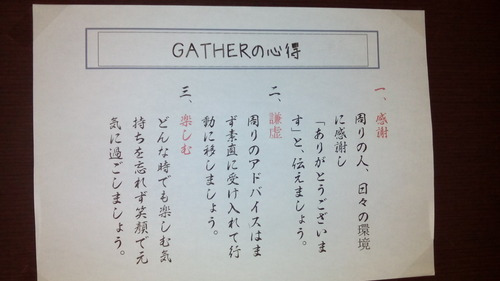 GATHERの心得
一、感謝
周りの人、日々の環境
に感謝し
「ありがとうございま
す」と、伝えましょう。
二、謙虚
周りのアドバイスはま
ず素直に受け入れて行
動に移しましょう。
三、楽しむ
どんな時でも楽しむ気
持ちを忘れず笑顔で元
気に過ごしましょう。